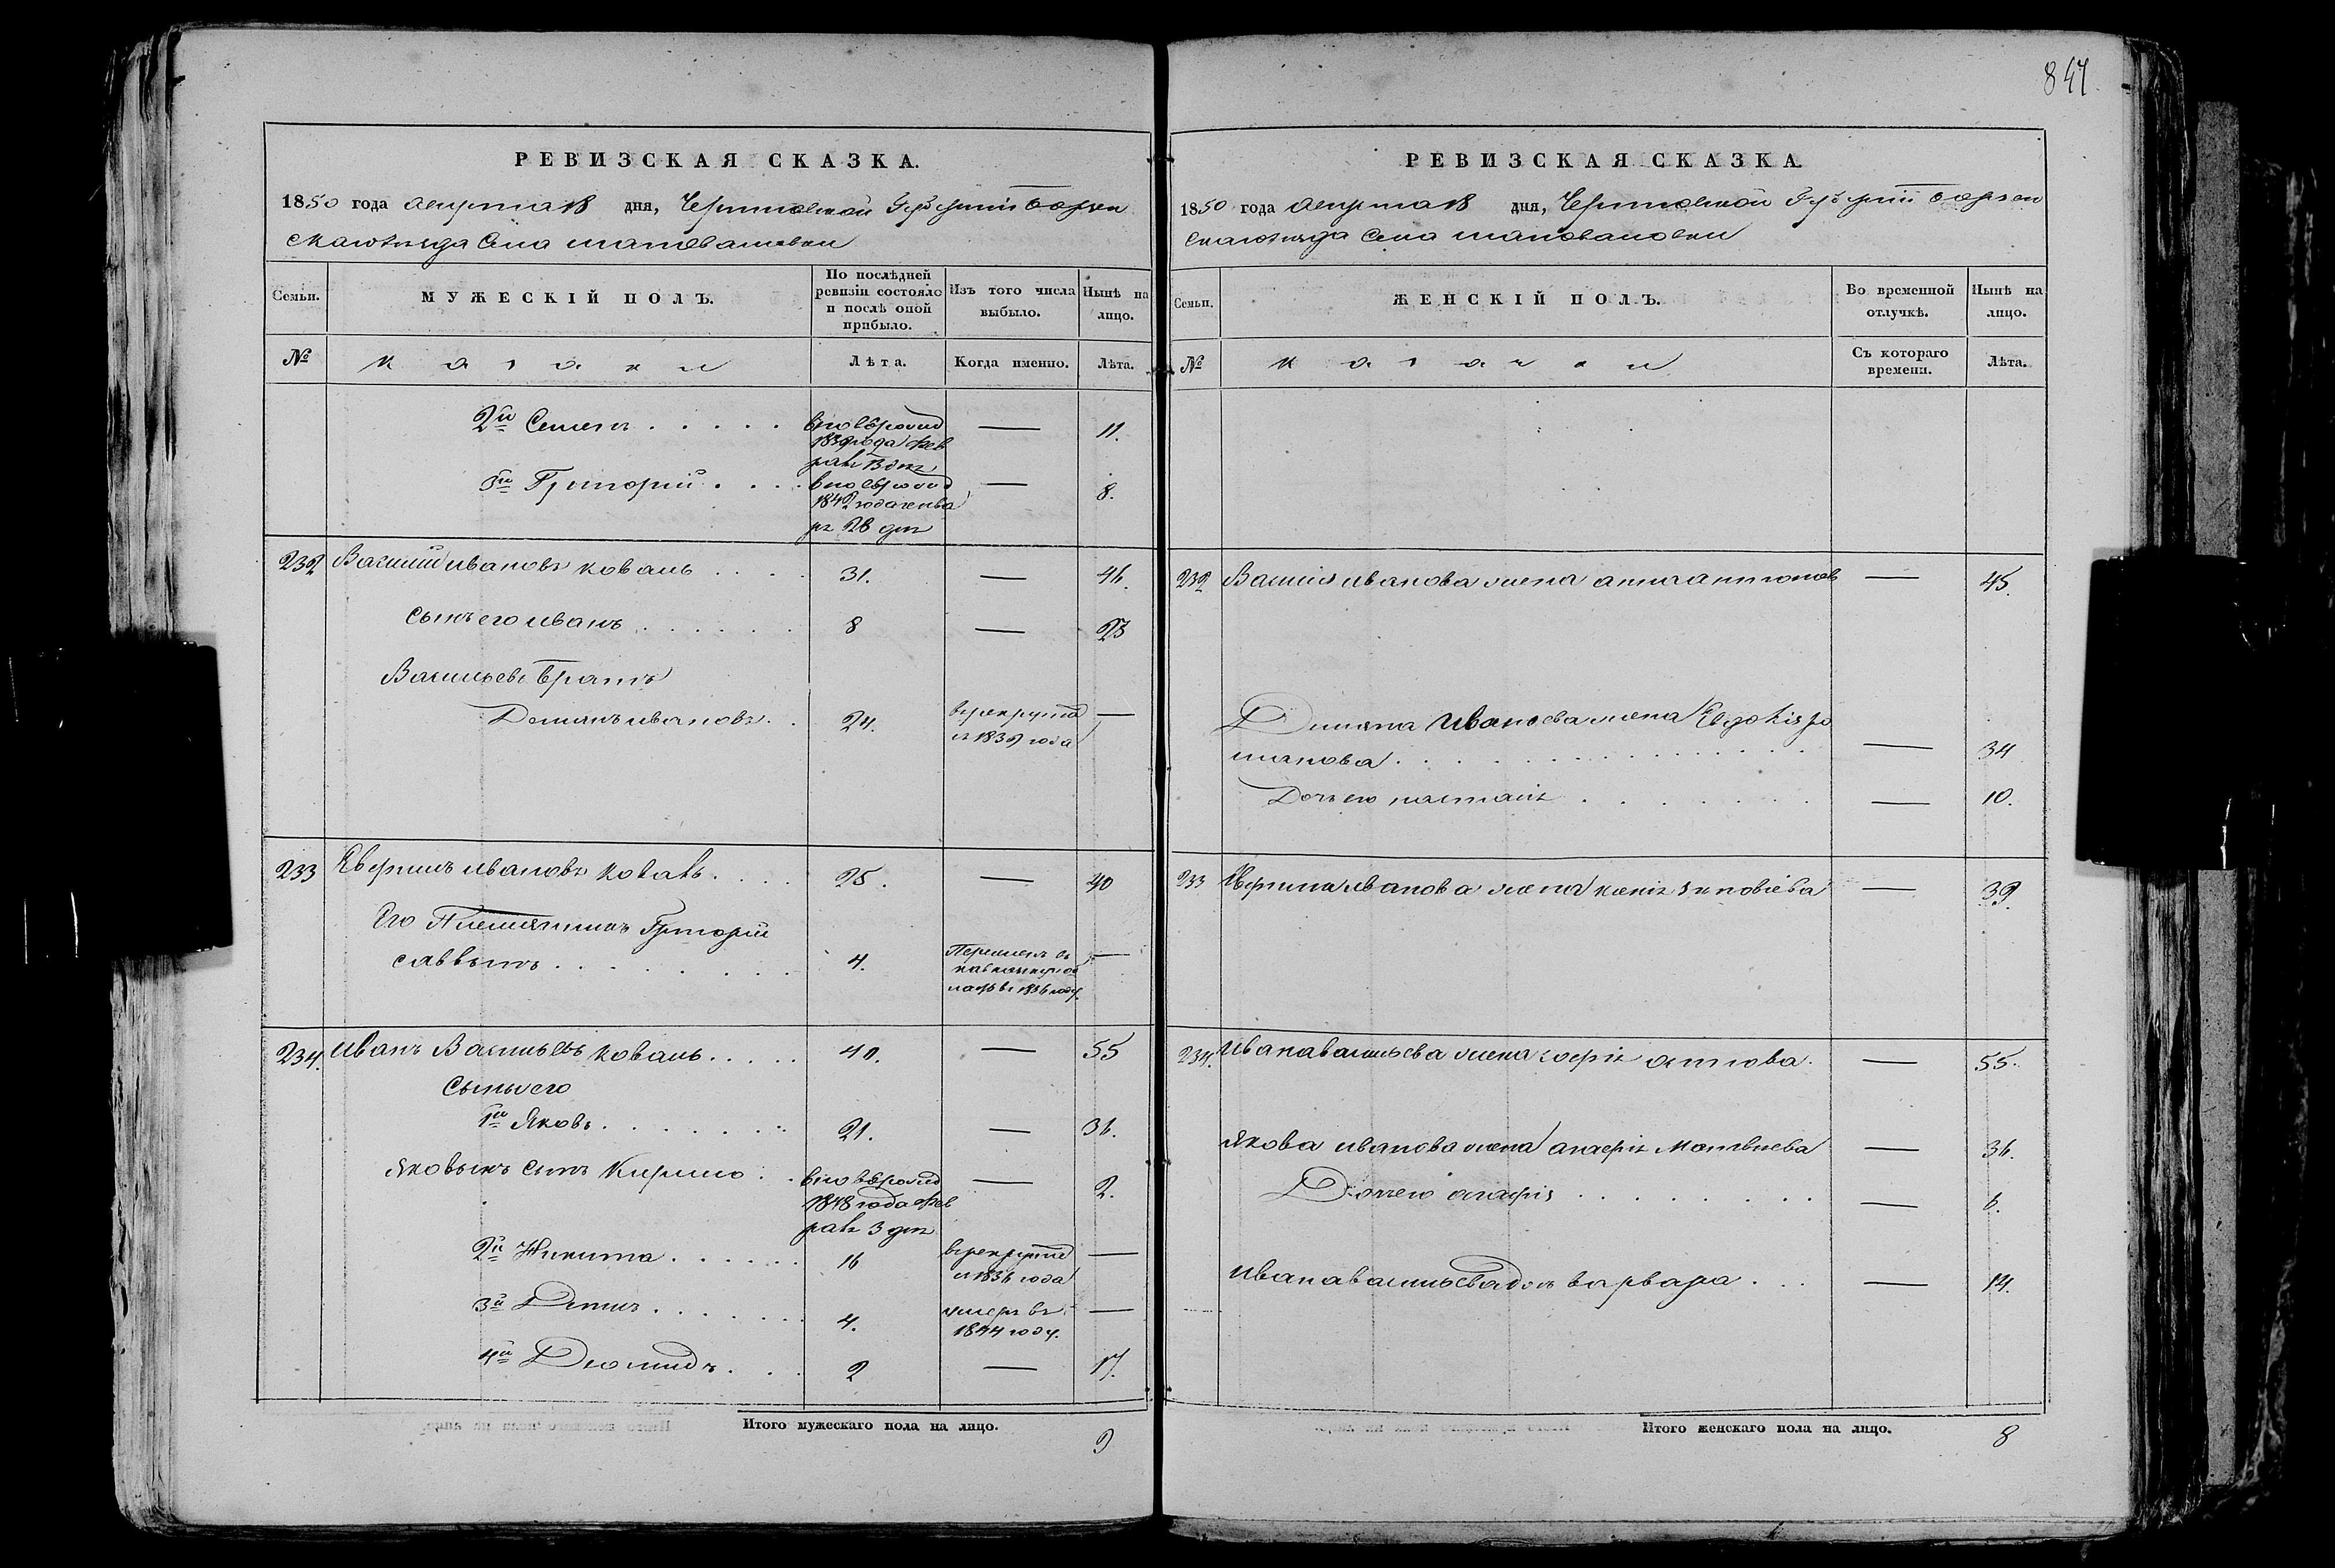 847
РЕВИЗСКАЯ СКАЗКА.
1850 года августа 18 дня, Черниговской Губернии Борзен
скаго уезда Села шаповаловки
Семьи. МУЖЕСКІЙ ПОЛЪ. По послѣдней ревизіи состояло и послѣ оной прибыло. Изъ того числа выбыло. Нынѣ на лицо.
№ казаки Лѣта. Когда именно. Лѣта.
2й Семенъ . . . . . вновърожд — 11.
1839 года фев
раля 13 дня
3й Григорій . . . вновьрожд — 8.
1842 года генва
ря 28 дня
232 Василий ивановъ коваль . . . . 31. — 46.
сынъ его иванъ . . . . . . 8 — 23
Васильевъ братъ
Демянъ ивановъ . . 24. врекруты —
с 1839 года
233 Аверкий ивановъ коваль . . . . 25. — 40
Его Племянникъ Григорій
саввинъ . . . . . . . . 4. —
в 1836 году.
234. иванъ Васильевъ коваль . . . . . 40. — 55
Сыны его
1й Яковъ . . . . . . . 21. — 36.
яковынъ сынъ Кирило . . вновьрожд — 2.
1848 года фев
раля 3 дня
2й Никита . . . . . . 16 врекруты —
с 1836 года
3й . . . . . . . 4. умеръ въ —
1844 году.
4й Диомидъ . . . 2 — 17.
Итого мужескаго пола на лицо.
9
РЕВИЗСКАЯ СКАЗКА
1850 года августа 18 дня, Черниговской Губерніи борзен
скаго уезда Села шаповаловки
Семьи. ЖЕНСКІЙ ПОЛЪ. Во временной отлучкѣ. Нынѣ на лицо.
№ казачки Съ котораго времени. Лѣта.
232 Василия иванова жена антонов — 45.
Демяна Иванова жена Евдокія ро
манова . . . . . . . . . . . . — 34
Дочь его настасія . . . . . . — 10.
233 иванова жена ксенія зиновіева — 39.
234. ивана васильева жена софія — 55.
якова иванова жена агафія Матвѣева — 36.
Дочь его агафія . . . . . . . . — 6.
ивана васильева дочь варвара . . . — 14.
Итого женскаго пола на лицо.
8